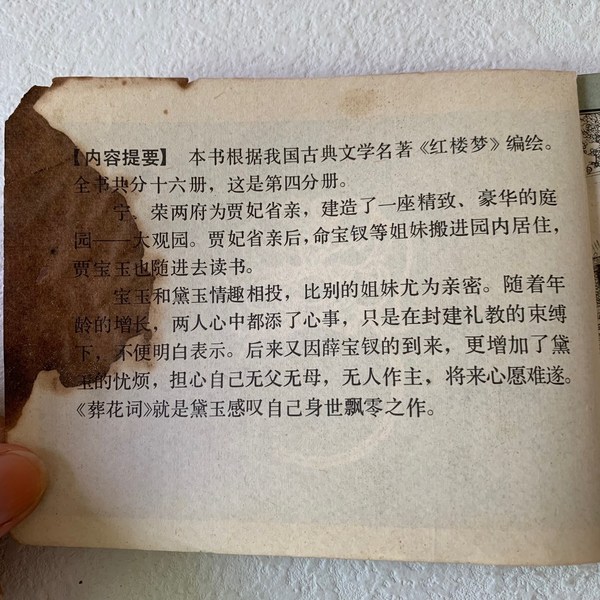 【内容提要】 本书根据我国古典文学名著《红楼梦》编绘。
全书共分十六册，这是第四分册。
宁、荣两府为贾妃省亲，建造了一座精致、豪华的庭
园——大观园。贾妃省亲后，命宝钗等姐妹搬进园内居住，
贾宝玉也随进去读书。
宝玉和黛玉情趣相投，比别的姐妹尤为亲密。随着年
龄的增长，两人心中都添了心事，只是在封建礼教的束缚
下，不便明白表示。后来又因薛宝钗的到来，更增加了黛
玉的忧烦，担心自己无父无母，无人作主，将来心愿难遂。
《葬花词》就是黛玉感叹自己身世飘零之作。